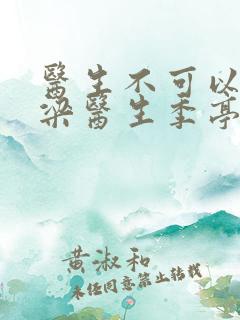 醫生不可以
梁醫生季亭
黃淑和
未經同意禁止轉載